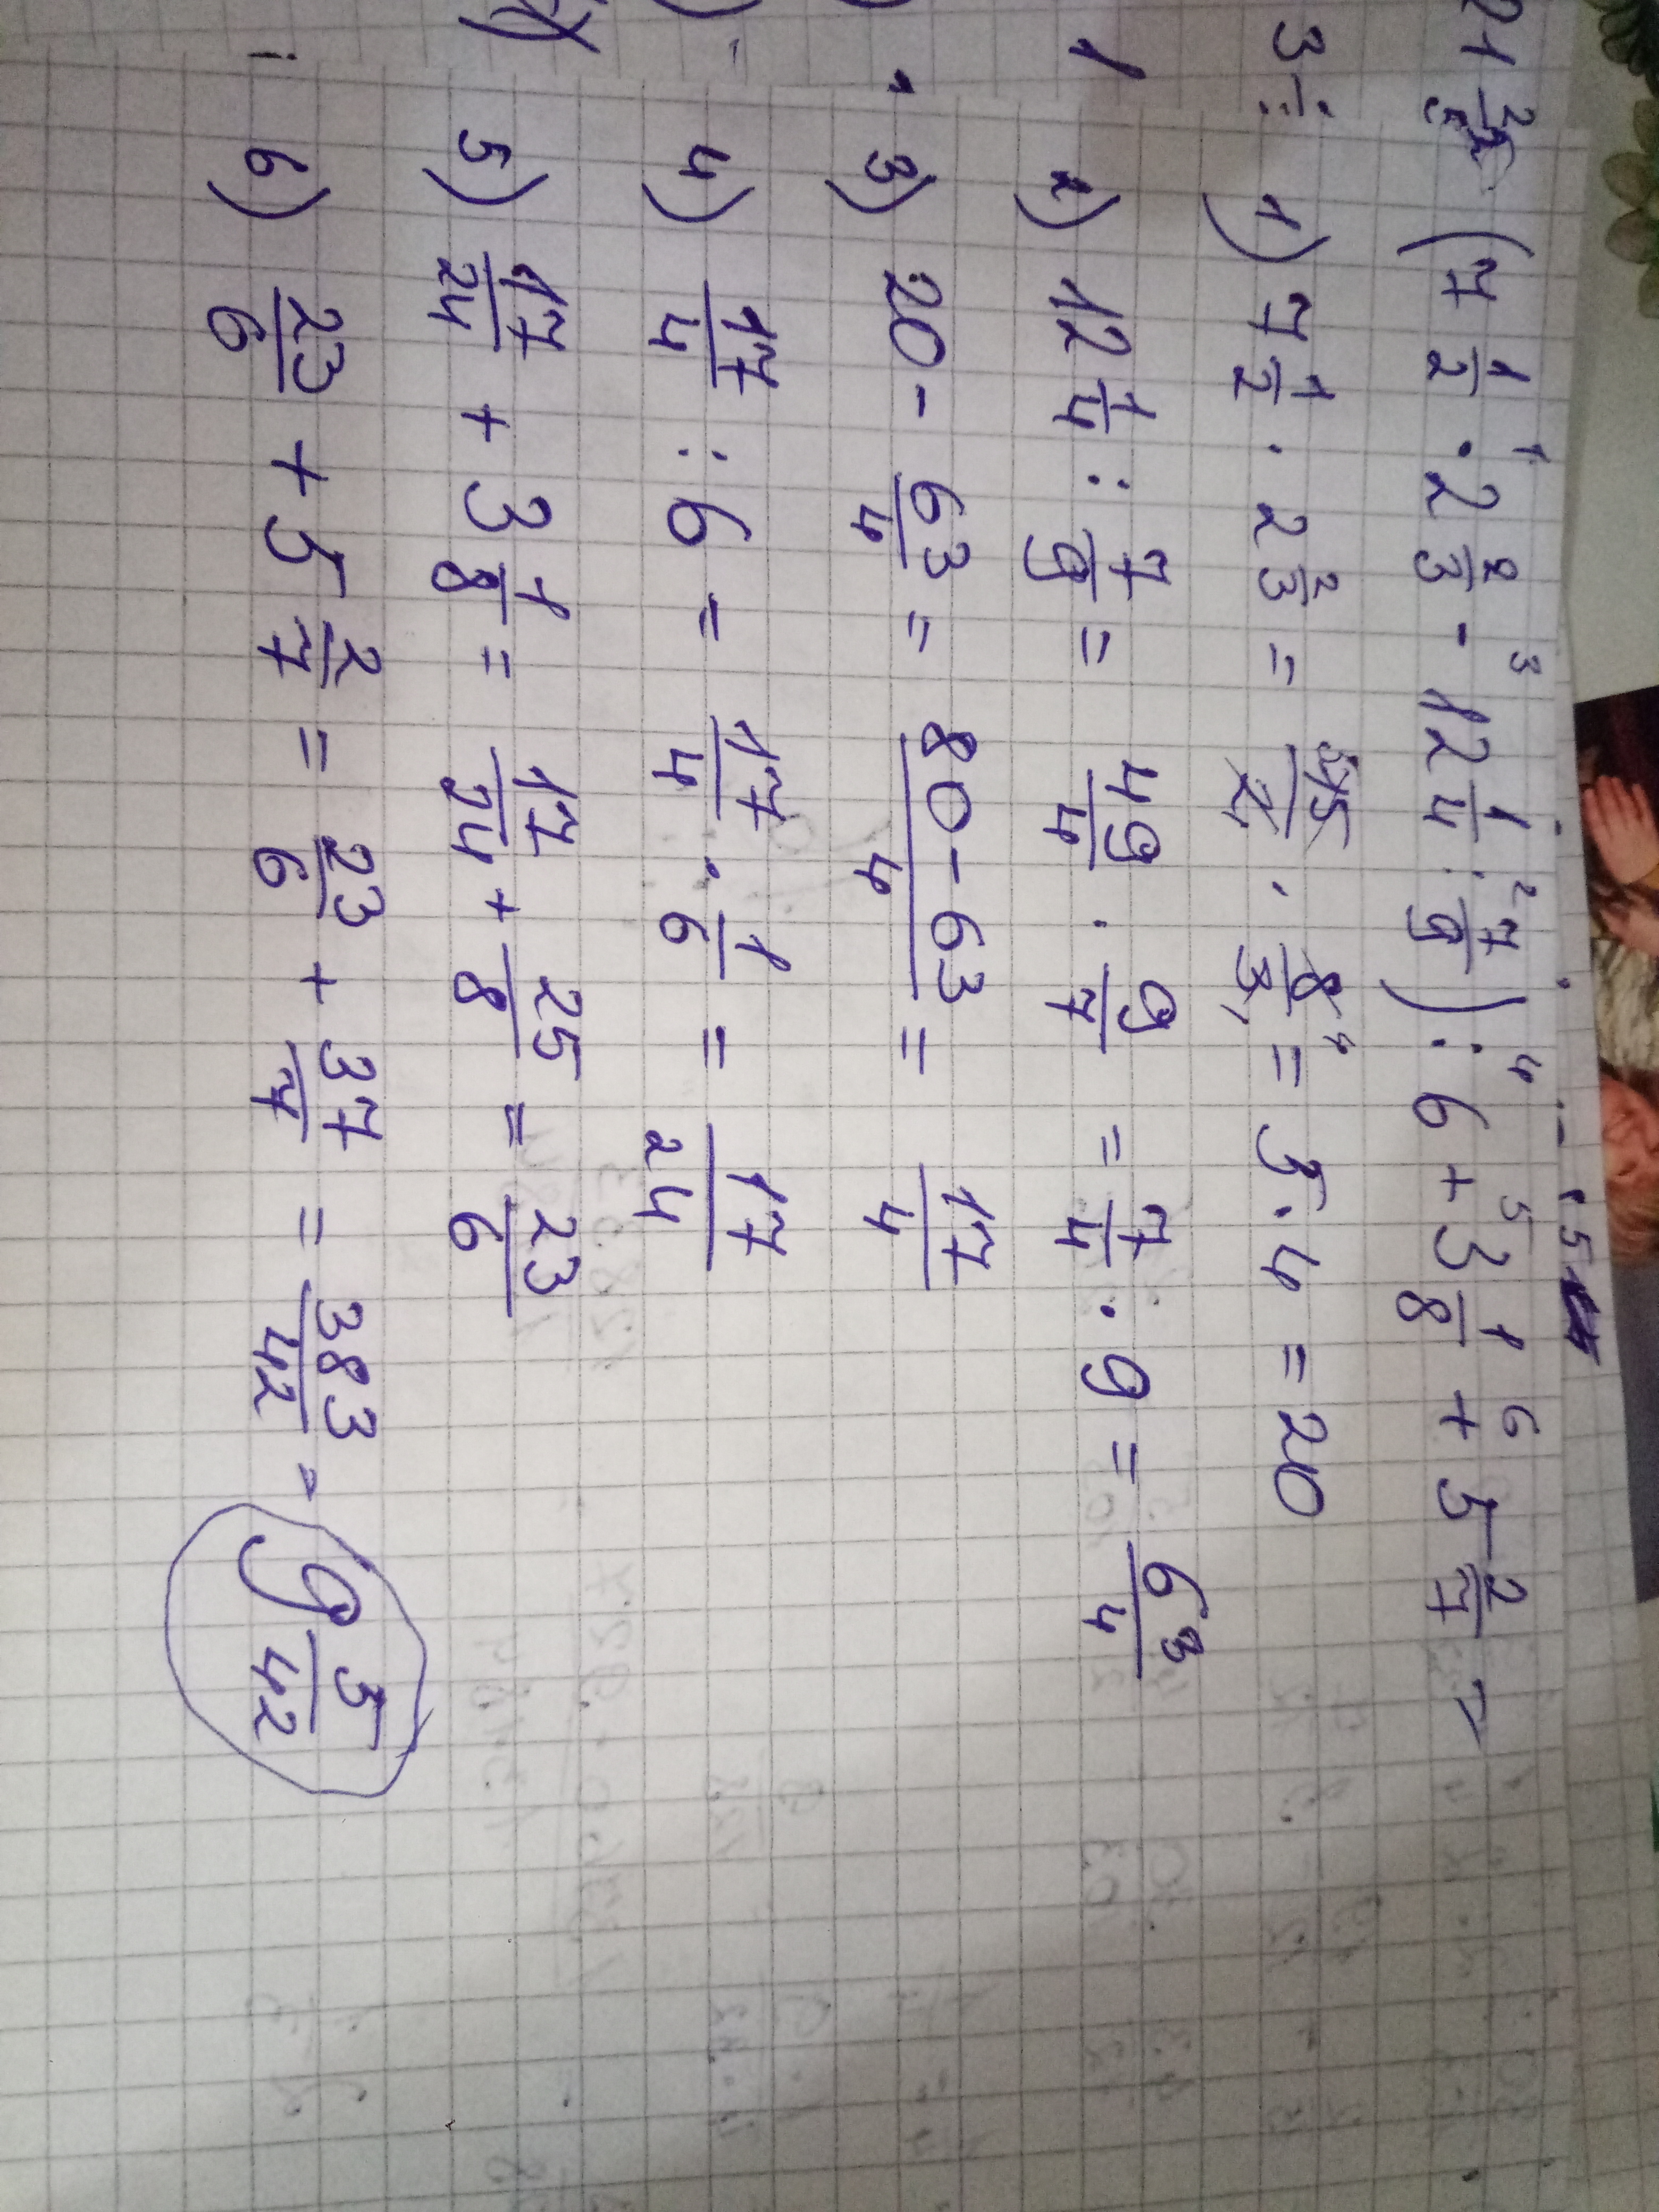 (7 1/2 · 2 2/3 - 12 1/4 : 7/9) : 6 + 3 1/8 + 5 2/7 =
1) 7 1/2 · 2 2/3 = 15/2 · 8/3 = 5 · 4 = 20
2) 12 1/4 : 7/9 = 49/4 · 9/7 = 7/4 · 9 = 63/4
3) 20 - 63/4 = 80-63/4 = 17/4
4) 17/4 : 6 = 17/4 · 1/6 = 17/24
5) 17/24 + 3 1/8 = 17/24 + 25/8 = 23/6
6) 23/6 + 5 2/7 = 23/6 + 37/7 = 383/42 = 9 5/42